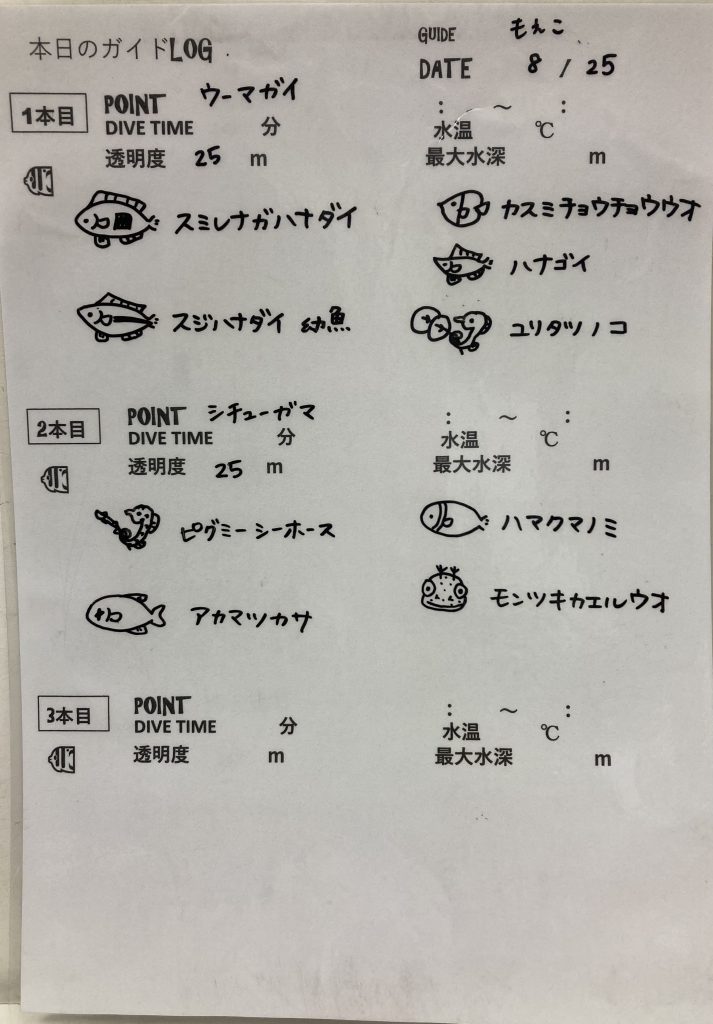 本日のガイドLOG.
GUIDE もえこ
DATE 8 / 25
1本目 POINT ウーマガイ : ～ :
DIVE TIME 分 水温 ℃
透明度 25 m 最大水深 m
スミレナガハナダイ カスミチョウチョウウオ
ハナゴイ
スジハナダイ 幼魚 ユリタツノコ
2本目 POINT シチューガマ : ～ :
DIVE TIME 分 水温 ℃
透明度 25 m 最大水深 m
ピグミーシーホース ハマクマノミ
アカマツカサ モンツキカエルウオ
3本目 POINT : ～ :
DIVE TIME 分 水温 ℃
透明度 m 最大水深 m